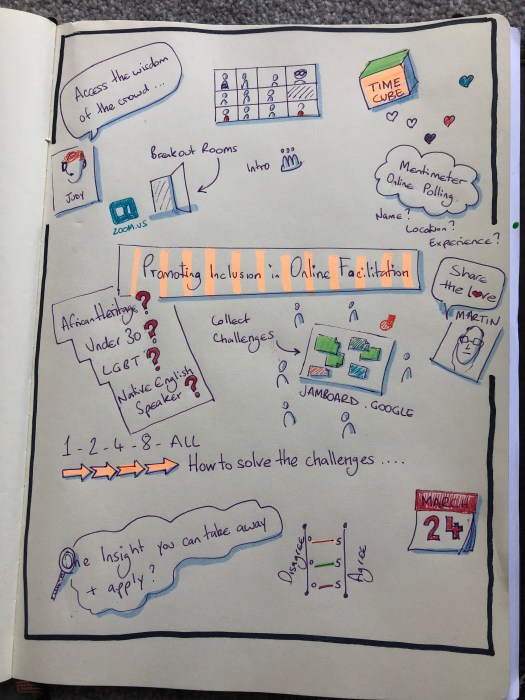 Access the wisdom
of the crowd...
JUDY
TIME
CUBE
Breakout Rooms
Intro
ZOOM.US
Mentimeter
Online Polling
Name?
Location?
Experience?
Promoting Inclusion in Online Facilitation
Share
the love
MARTIN
African Heritage?
Under 30?
LGBT?
Native English
Speaker?
Collect
Challenges
JAMBOARD.GOOGLE
1-2-4-8-ALL
How to solve the challenges....
MARCH
24
One Insight you can take away
+ apply?
Disagree
0 S
0 S
0 S
Agree